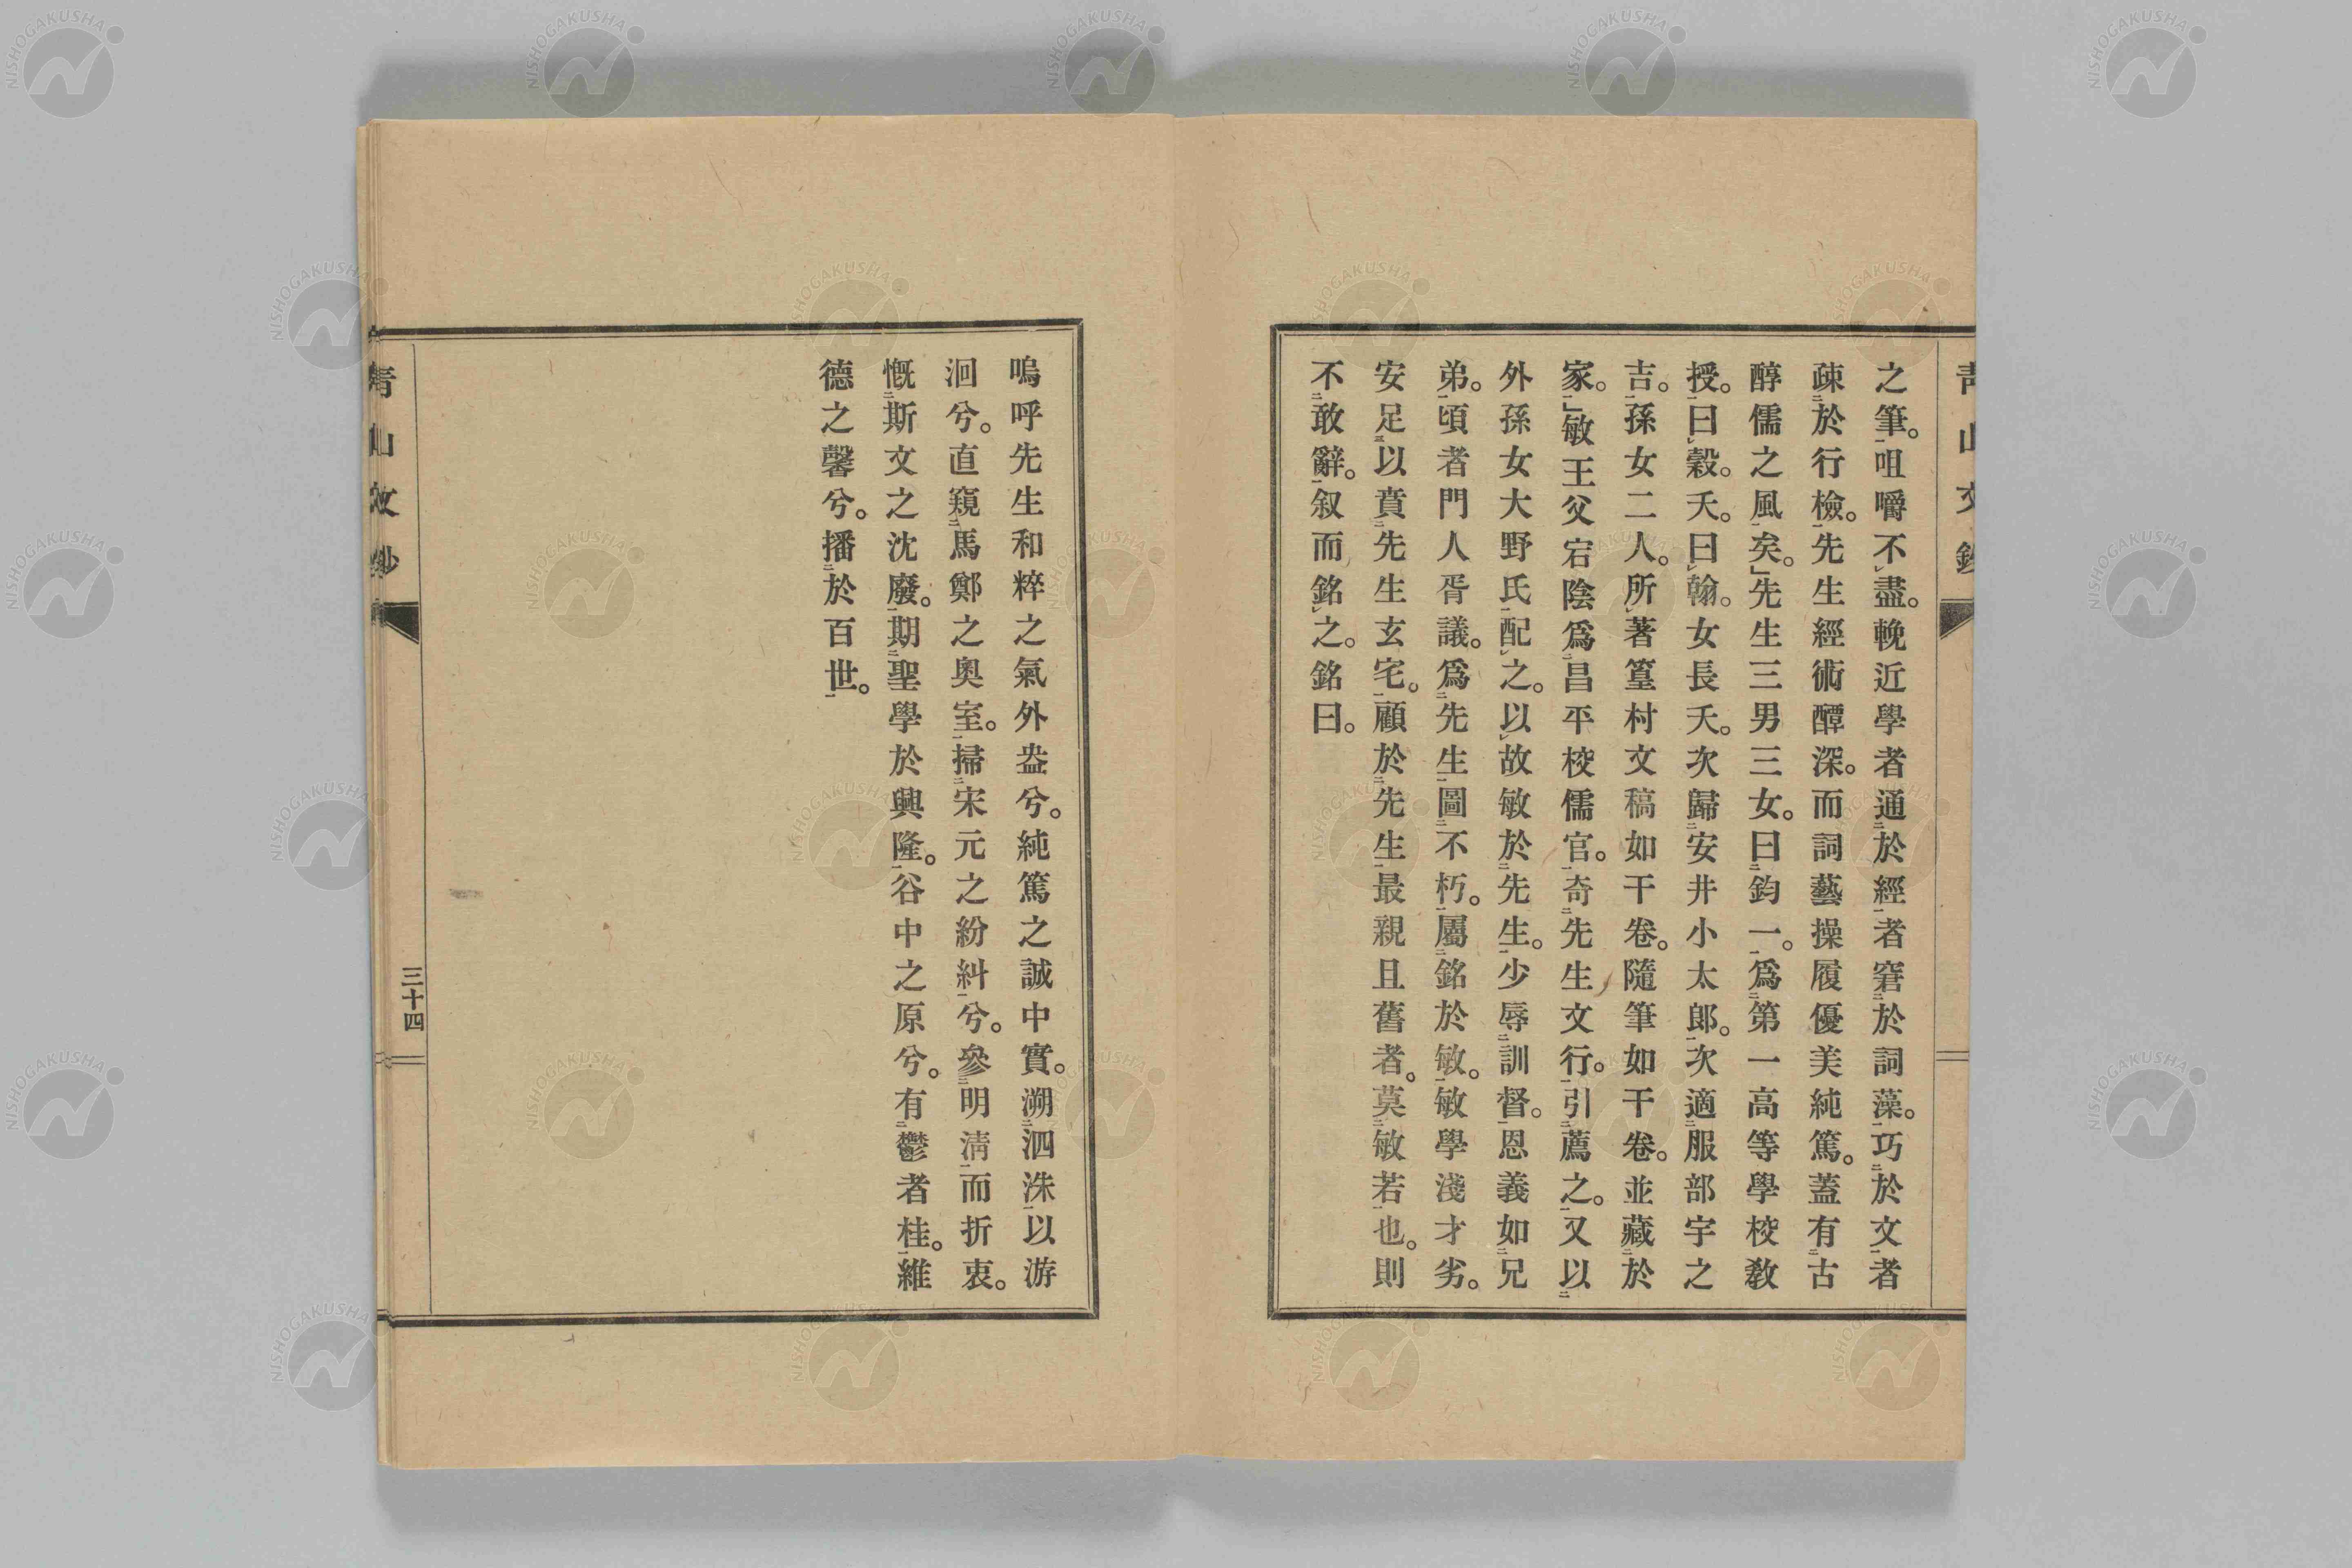 之筆。咀嚼不盡。輓近學者通於經者窘於詞藻。巧於文者
疎於行檢。先生經術醰深。而詞藝操履優美純篤。蓋有古
醇儒之風矣。」先生三男三女。曰鈞一。爲第一高等學校教
授。曰穀。夭。曰翰。女長夭。次歸安井小太郎。次適服部宇之
吉。孫女二人。所著篁村文稿如干卷。隨筆如干卷。並藏於
家。」敏王父宕陰爲昌平校儒官。奇先生文行。引薦之。又以
外孫女大野氏配之。以故敏於先生。少辱訓督。恩義如兄
弟。頃者門人胥議。爲先生圖不朽。屬銘於敏。敏學淺才劣。
安足以賁先生玄宅。顧於先生最親且舊者。莫敏若也。則
不敢辭。叙而銘之。銘曰。
嗚呼先生和粹之氣外盎兮。純篤之誠中實。溯泗洙以游
洄兮。直窺馬鄭之奧室。掃宋元之紛糾兮。參明淸而折衷。
慨斯文之沈廢。期聖學於興隆。谷中之原兮。有鬱者桂。維
德之馨兮。播於百世。
靑山文鈔
三十四
NISHOGAKUSHA